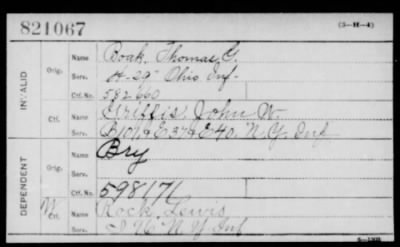 821067 (3-H-4)
INVALID
Orig.
Name Boak, Thomas G.
Serv. H-29" Ohio Inf-
Ctf. No. 582660
Ctf.
Name Griffis, John W.
Serv. B 107 & E 37 & E 40. N.Y. Inf
DEPENDENT
Orig.
Name Bry
Serv.
Ctf. No. 598171
W Ctf.
Name Rock Lewis
Serv. I 76 N Y Inf